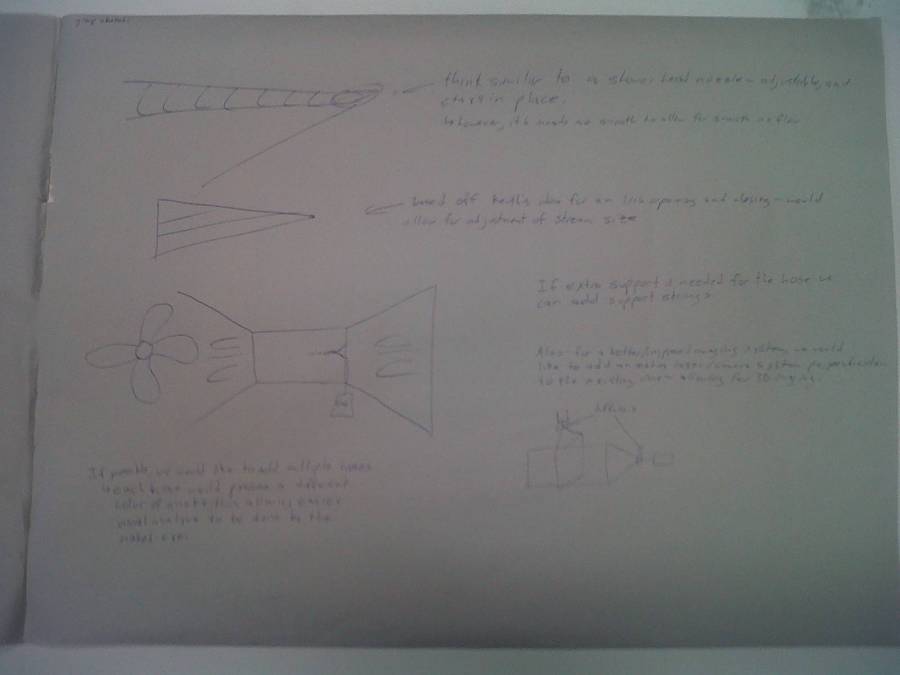 think similar to a shower head nozzle - adjustable, and
stays in place.
however, it needs smooth to allow for smooth air flow
based off Keith's idea for an iris opening and closing - would
allow for adjustment of stream size
If extra support is needed for the hose we
can add support strings
Also for a better/improved imaging system, we would
like to add an extra laser/camera system perpendicular
to the existing one - allowing for 3D imaging.
If possible, we would like to add multiple hoses
each hose would produce a different
color of smoke thus allowing easier
visual analysis to be done by the
naked eye.